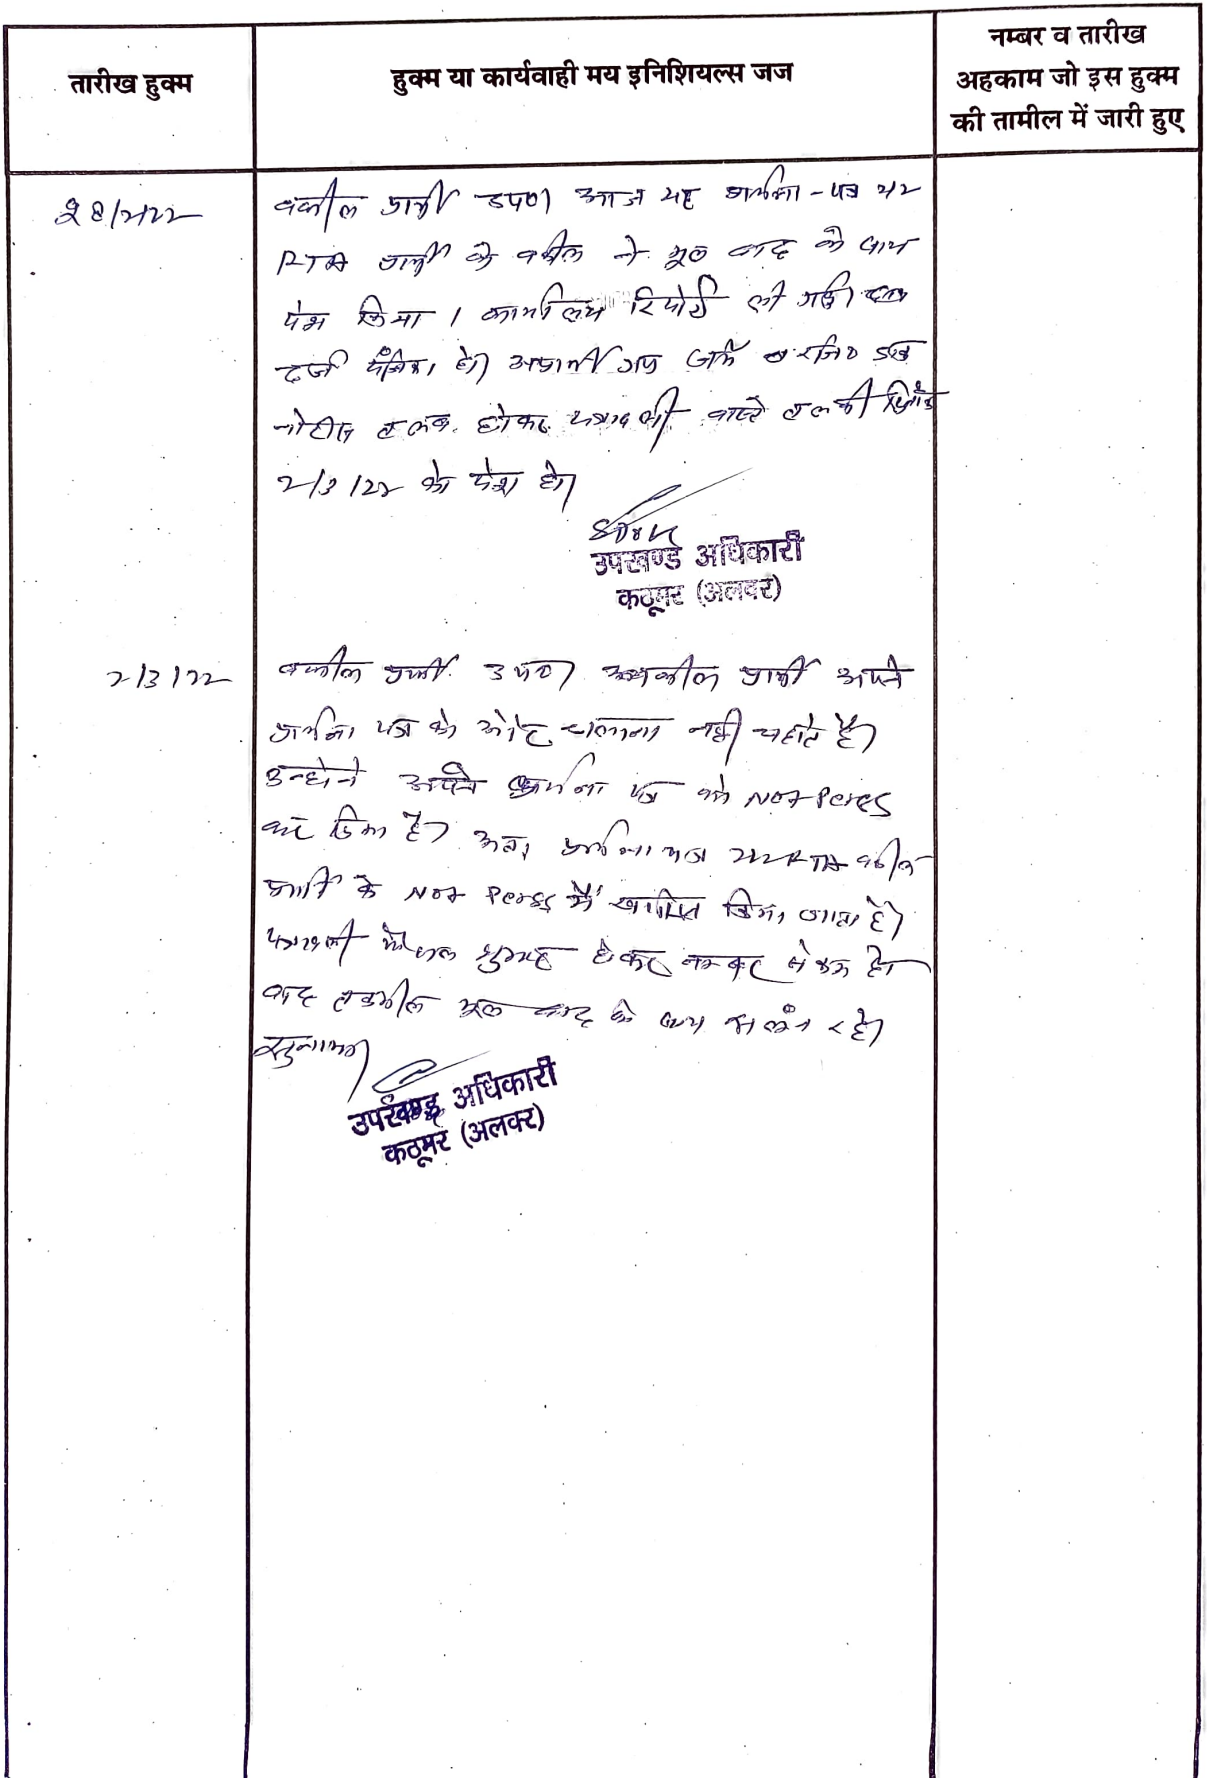 तारीख हुक्म
हुक्म या कार्यवाही मय इनिशियल्स जज
नम्बर व तारीख
अहकाम जो इस हुक्म
की तामील में जारी हुए
वकील प्रार्थी उप०। आज यह प्रार्थना-पत्र 212
RTA प्रार्थी के वकील ने मूल वाद के साथ
पेश किया। कार्यालय रिपोर्ट ली गई।
दर्ज हो। अप्रार्थी गण जर्ये रजि०
नोटिस तलब होकर पत्रावली वास्ते तलबी
2/3/22 को पेश हो।
उपखण्ड अधिकारी
कठूमर (अलवर)
2/3/22
वकील प्रार्थी उप०। वकील प्रार्थी अपने
प्रार्थना पत्र को आगे चलाना नहीं चाहते है।
उन्होने अपने प्रार्थना पत्र को Not Peres
कर दिया है। अतः प्रार्थना पत्र 212 RTA वकील
प्रार्थी के Not Peres में खारिज किया जाता है।
पत्रावली फैसल शुमार होकर नम्बर से कम हो
वाद तकमील मूल वाद के साथ संलग्न रहे।
उपखण्ड अधिकारी
कठूमर (अलवर)